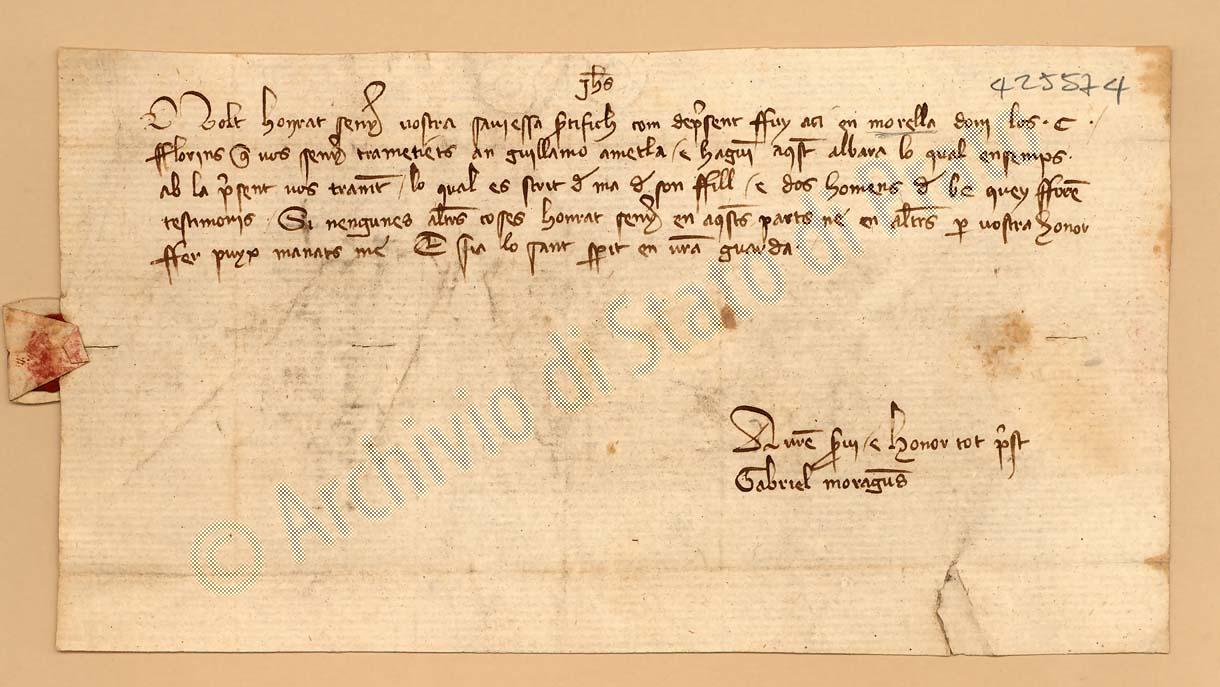 jhs
425574
Molt honrat senyer vostra saviessa certifich com depresent ffuy aci en morella doni los · C ·
fflorins q vos senyer trametiets an guillamo ametla / e hagui aqst albara lo qual ensemps
ab la present vos tramet / lo qual es scrit d ma d son ffill / e dos homens d be quey fforen
testimonis · Si nengunes altres coses honrat senyer en aqsts parts ne en altres per vostra honor
ffer puyx manats me E sia lo sant sperit en vra guarda ·
A vre servi / e honor tot prst
Gabriel moragues
© Archivio di Stato di Prato